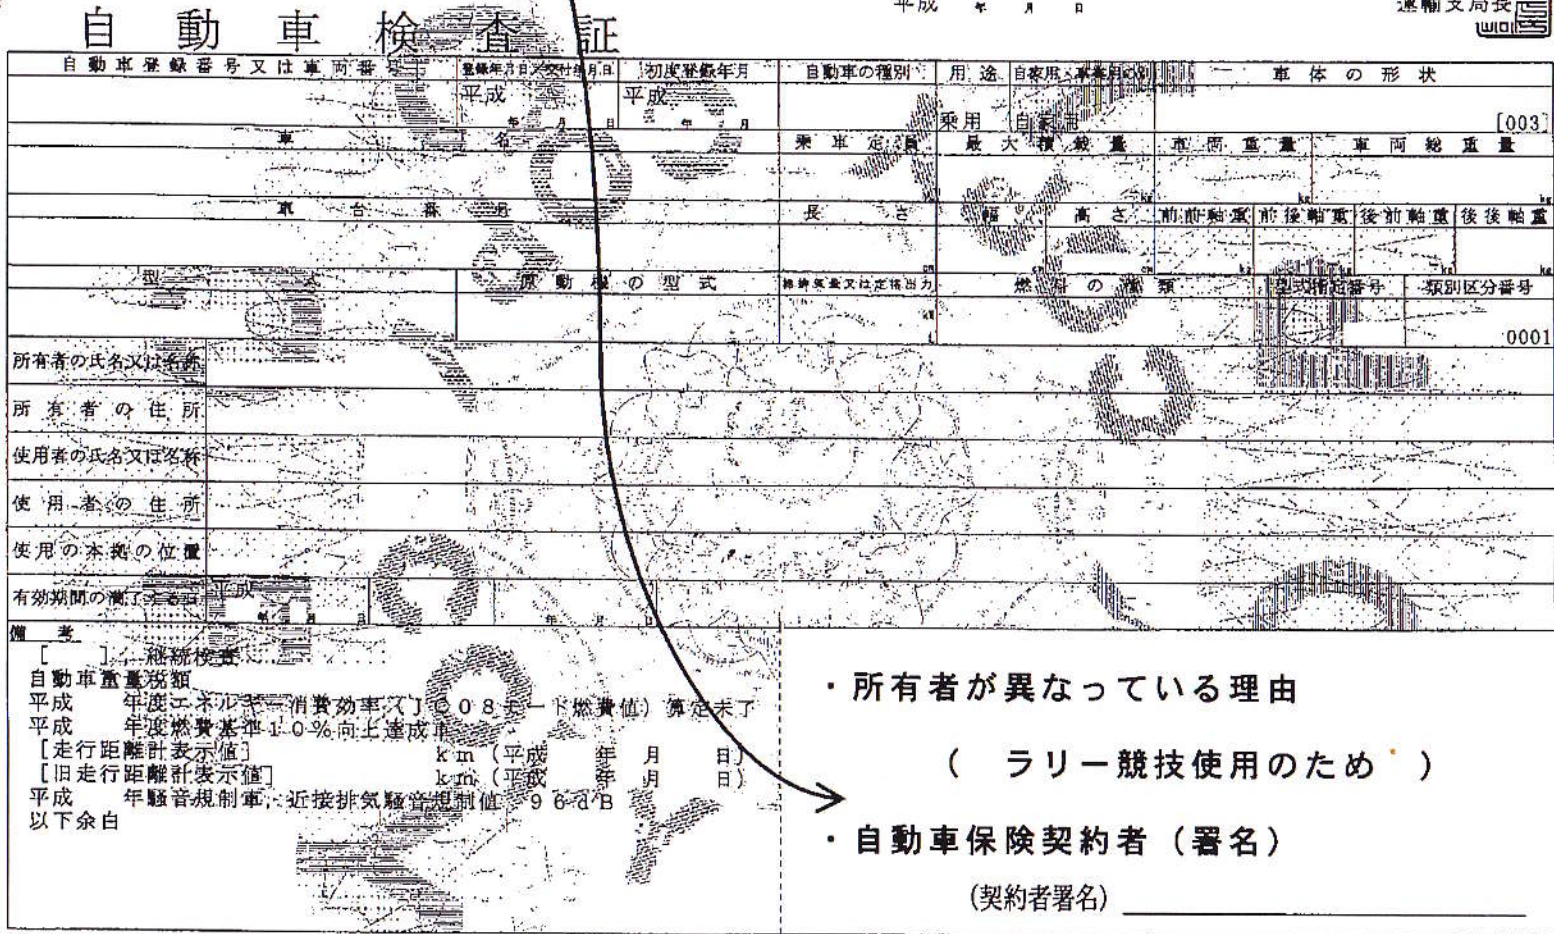 平成 年 月 日 運輸支局長
自動車検査証
自動車登録番号又は車両番号 登録年月日/交付年月日 初度登録年月 自動車の種別 用途 自家用・事業用の別 車体の形状
平成 年 月 日 平成 年 月 乗用 自家用 [003]
車名 乗車定員 最大積載量 車両重量 車両総重量
kg kg kg
車台番号 長さ 幅 高さ 前前軸重 前後軸重 後前軸重 後後軸重
cm cm cm kg kg kg kg
型式 原動機の型式 総排気量又は定格出力 燃料の種類 型式指定番号 類別区分番号
kW
L 0001
所有者の氏名又は名称
所有者の住所
使用者の氏名又は名称
使用者の住所
使用の本拠の位置
有効期間の満了する日 平成 年 月 日 年 月 日
備考
[ ], 継続検査
自動車重量税額
平成 年度エネルギー消費効率(JC08モード燃費値)算定未了
平成 年度燃費基準10%向上達成車
[走行距離計表示値] km(平成 年 月 日)
[旧走行距離計表示値] km(平成 年 月 日)
平成 年騒音規制車, 近接排気騒音規制値 96dB
以下余白
・所有者が異なっている理由
( ラリー競技使用のため )
・自動車保険契約者(署名)
(契約者署名)